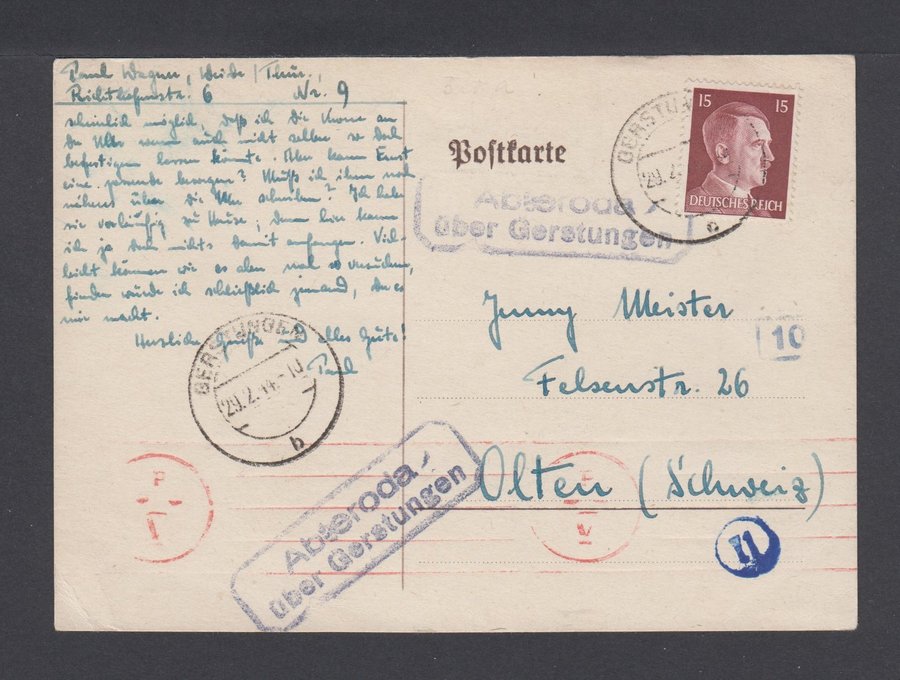 Paul Wagner, Weida / Thür.,
Richthofenstr. 6 Nr. 9
scheinlich möglich, daß ich die Krone an
der Uhr wenn auch nicht selber so doch
befestigen lassen könnte. Aber kann Ernst
eine passende besorgen? Muß ich ihm noch
näheres über die Uhr schreiben? Ich habe
sie vorläufig zu Hause, denn hier kann
ich ja doch nichts damit anfangen. Viel-
leicht können wir es aber mal so versuchen,
finden würde ich schließlich jemand, der es
mir macht.
Herzliche Grüße und alles Gute!
Paul
GERSTUNGEN
29.2.44.-10
b
Postkarte
GERSTUN
29.
b
15 15
DEUTSCHES REICH
Abteroda
über Gerstungen
Jenny Meister
10
Felsenstr. 26
Olten (Schweiz)
Abteroda
über Gerstungen
11